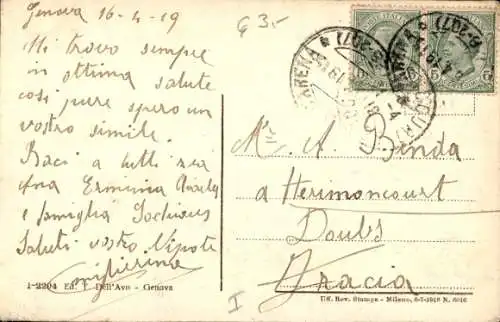 Genova 16-4-19
G 3.-
Mi trovo sempre
in ottima salute
cosi pure spero un
vostro simile.
Baci a tutti zia
Erminia
e famiglia
Saluti vostro Nipote
1-2294 Ed. F. Dell'Avo - Genova
M. A. Benda
a Herimoncourt
Doubs
Fracia
I
Uff. Rev. Stampa - Milano, 6-7-1918 N. 6016